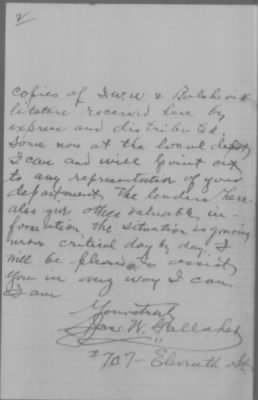 2
copies of I.W.W & Bolshevik
litature received here by
express and distributed.
Some now at the local depot,
I can and will point out
to any representative of your
department, the leaders here.
also give other valuable in-
formation, the situation is growing
more critical day by day. I
will be pleased to assist
you in any way I can.
I am
Yours truly
Jas. W. Gallaher
#707- Eleventh St